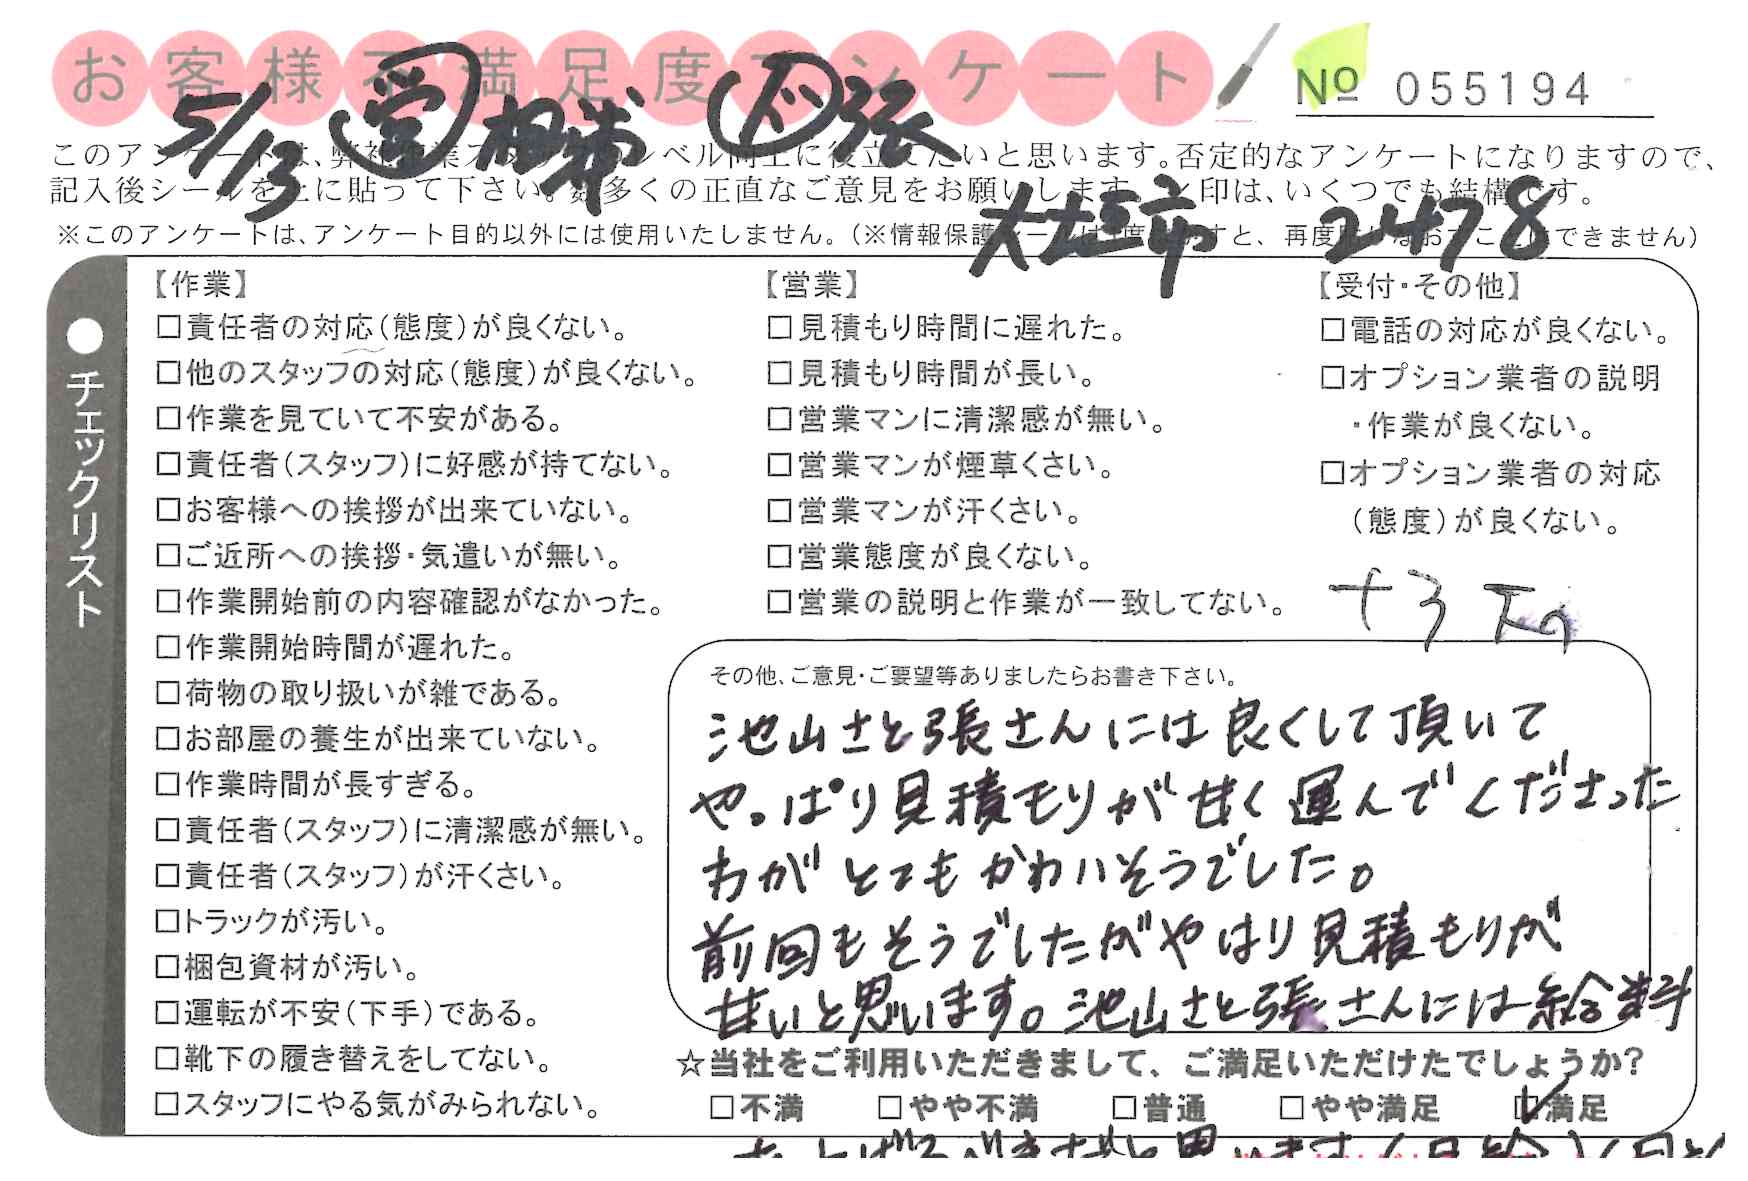 お客様不満足度アンケート
No 055194
5/13 受 相葉 ド 張
このアンケートは、弊社作業スタッフのレベル向上に役立てたいと思います。否定的なアンケートになりますので、
記入後シールを上に貼って下さい。数多くの正直なご意見をお願いします。レ印は、いくつでも結構です。
2478
※このアンケートは、アンケート目的以外には使用いたしません。(※情報保護シールは1度はがすと、再度貼りなおすことはできません)
●チェックリスト
【作業】
□責任者の対応(態度)が良くない。
□他のスタッフの対応(態度)が良くない。
□作業を見ていて不安がある。
□責任者(スタッフ)に好感が持てない。
□お客様への挨拶が出来ていない。
□ご近所への挨拶・気遣いが無い。
□作業開始前の内容確認がなかった。
□作業開始時間が遅れた。
□荷物の取り扱いが雑である。
□お部屋の養生が出来ていない。
□作業時間が長すぎる。
□責任者(スタッフ)に清潔感が無い。
□責任者(スタッフ)が汗くさい。
□トラックが汚い。
□梱包資材が汚い。
□運転が不安(下手)である。
□靴下の履き替えをしてない。
□スタッフにやる気がみられない。
【営業】
□見積もり時間に遅れた。
□見積もり時間が長い。
□営業マンに清潔感が無い。
□営業マンが煙草くさい。
□営業マンが汗くさい。
□営業態度が良くない。
□営業の説明と作業が一致してない。
【受付・その他】
□電話の対応が良くない。
□オプション業者の説明
・作業が良くない。
□オプション業者の対応
(態度)が良くない。
その他、ご意見・ご要望等ありましたらお書き下さい。
池山さと張さんには良くして頂いて
やっぱり見積もりが甘く運んでくださった
わがとてもかわいそうでした。
前回もそうでしたがやはり見積もりが
甘いと思います。池山さと張さんには給料
☆当社をご利用いただきまして、ご満足いただけたでしょうか?
□不満 □やや不満 □普通 □やや満足 ☑満足